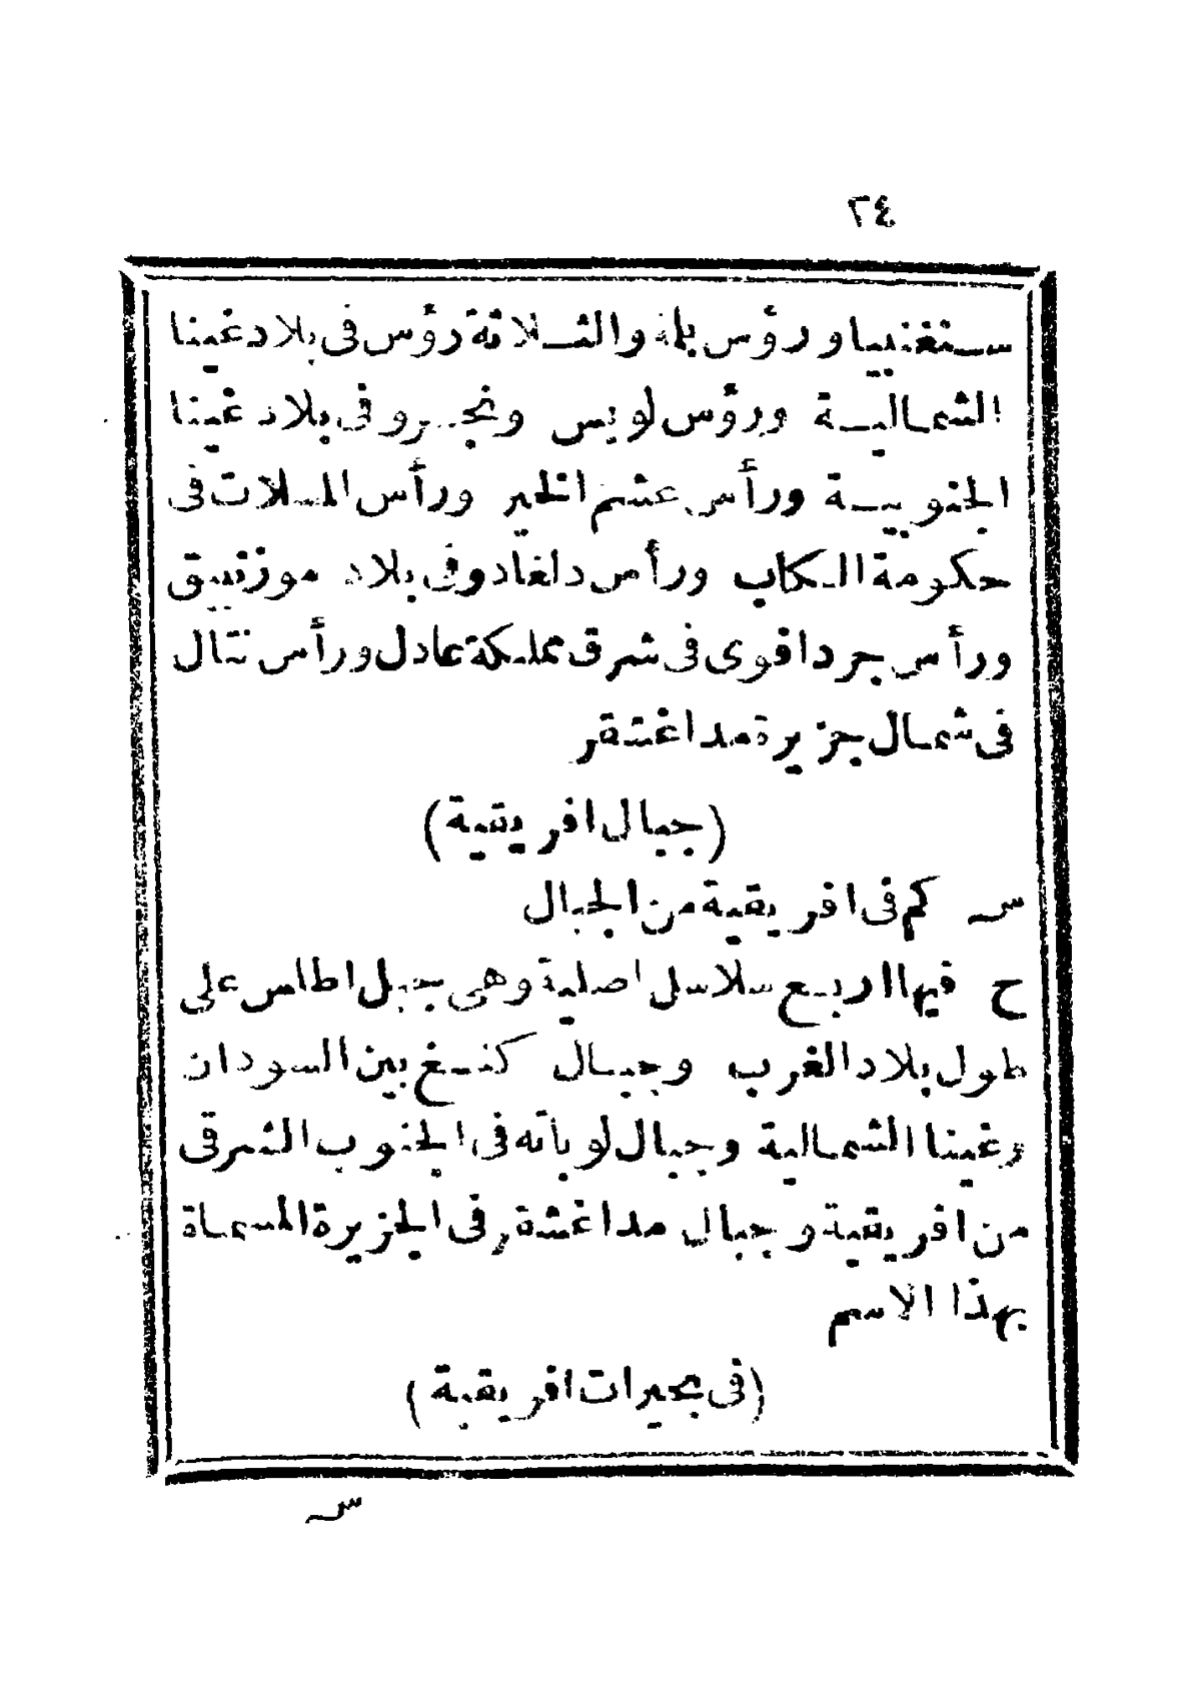 ٢٤
ستغنبيا ورؤس بله والثلاثة رؤس فى بلاد غينا
الشمالية ورؤس لوبس ونجرو فى بلاد غينا
الجنوبية ورأس عشم الخير ورأس المسلات فى
حكومة الكاب ورأس دلغادو فى بلاد موزنبيق
ورأس جردا قوى فى شرق مملكة عادل ورأس نتال
فى شمال جزيرة مداغشقر
(جبال افريقية)
س كم فى افريقية من الجبال
ج فيها اربع سلاسل اصلية وهى جبل اطلس على
طول بلاد الغرب وجبال كنغ بين السودان
وغينا الشمالية وجبال لوباته فى الجنوب الشرقى
من افريقية وجبال مداغشقر فى الجزيرة المسماة
بهذا الاسم
(فى بحيرات افريقية)
س